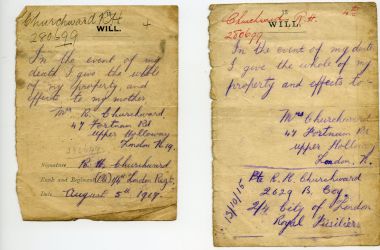 Churchward R H
280699
WILL.
In the event of my
death I give the whole
of my property, and
effects to my mother
Mrs R. Churchward
47 Fortnam Rd
upper Holloway
London N.19.
280699
Signature R. H. Churchward
Rank and Regiment (Pte) London Regt.
Date August 5th
Churchward R. H.
280699
15
WILL.
In the event of my death
I give the whole of my
property and effects to-
Mrs Churchward
47 Fortnam Rd
upper Holloway
London. N.
Pte R. H. Churchward
2629 B. Coy.
2/4 City of London
Royal Fusiliers
13/10/15